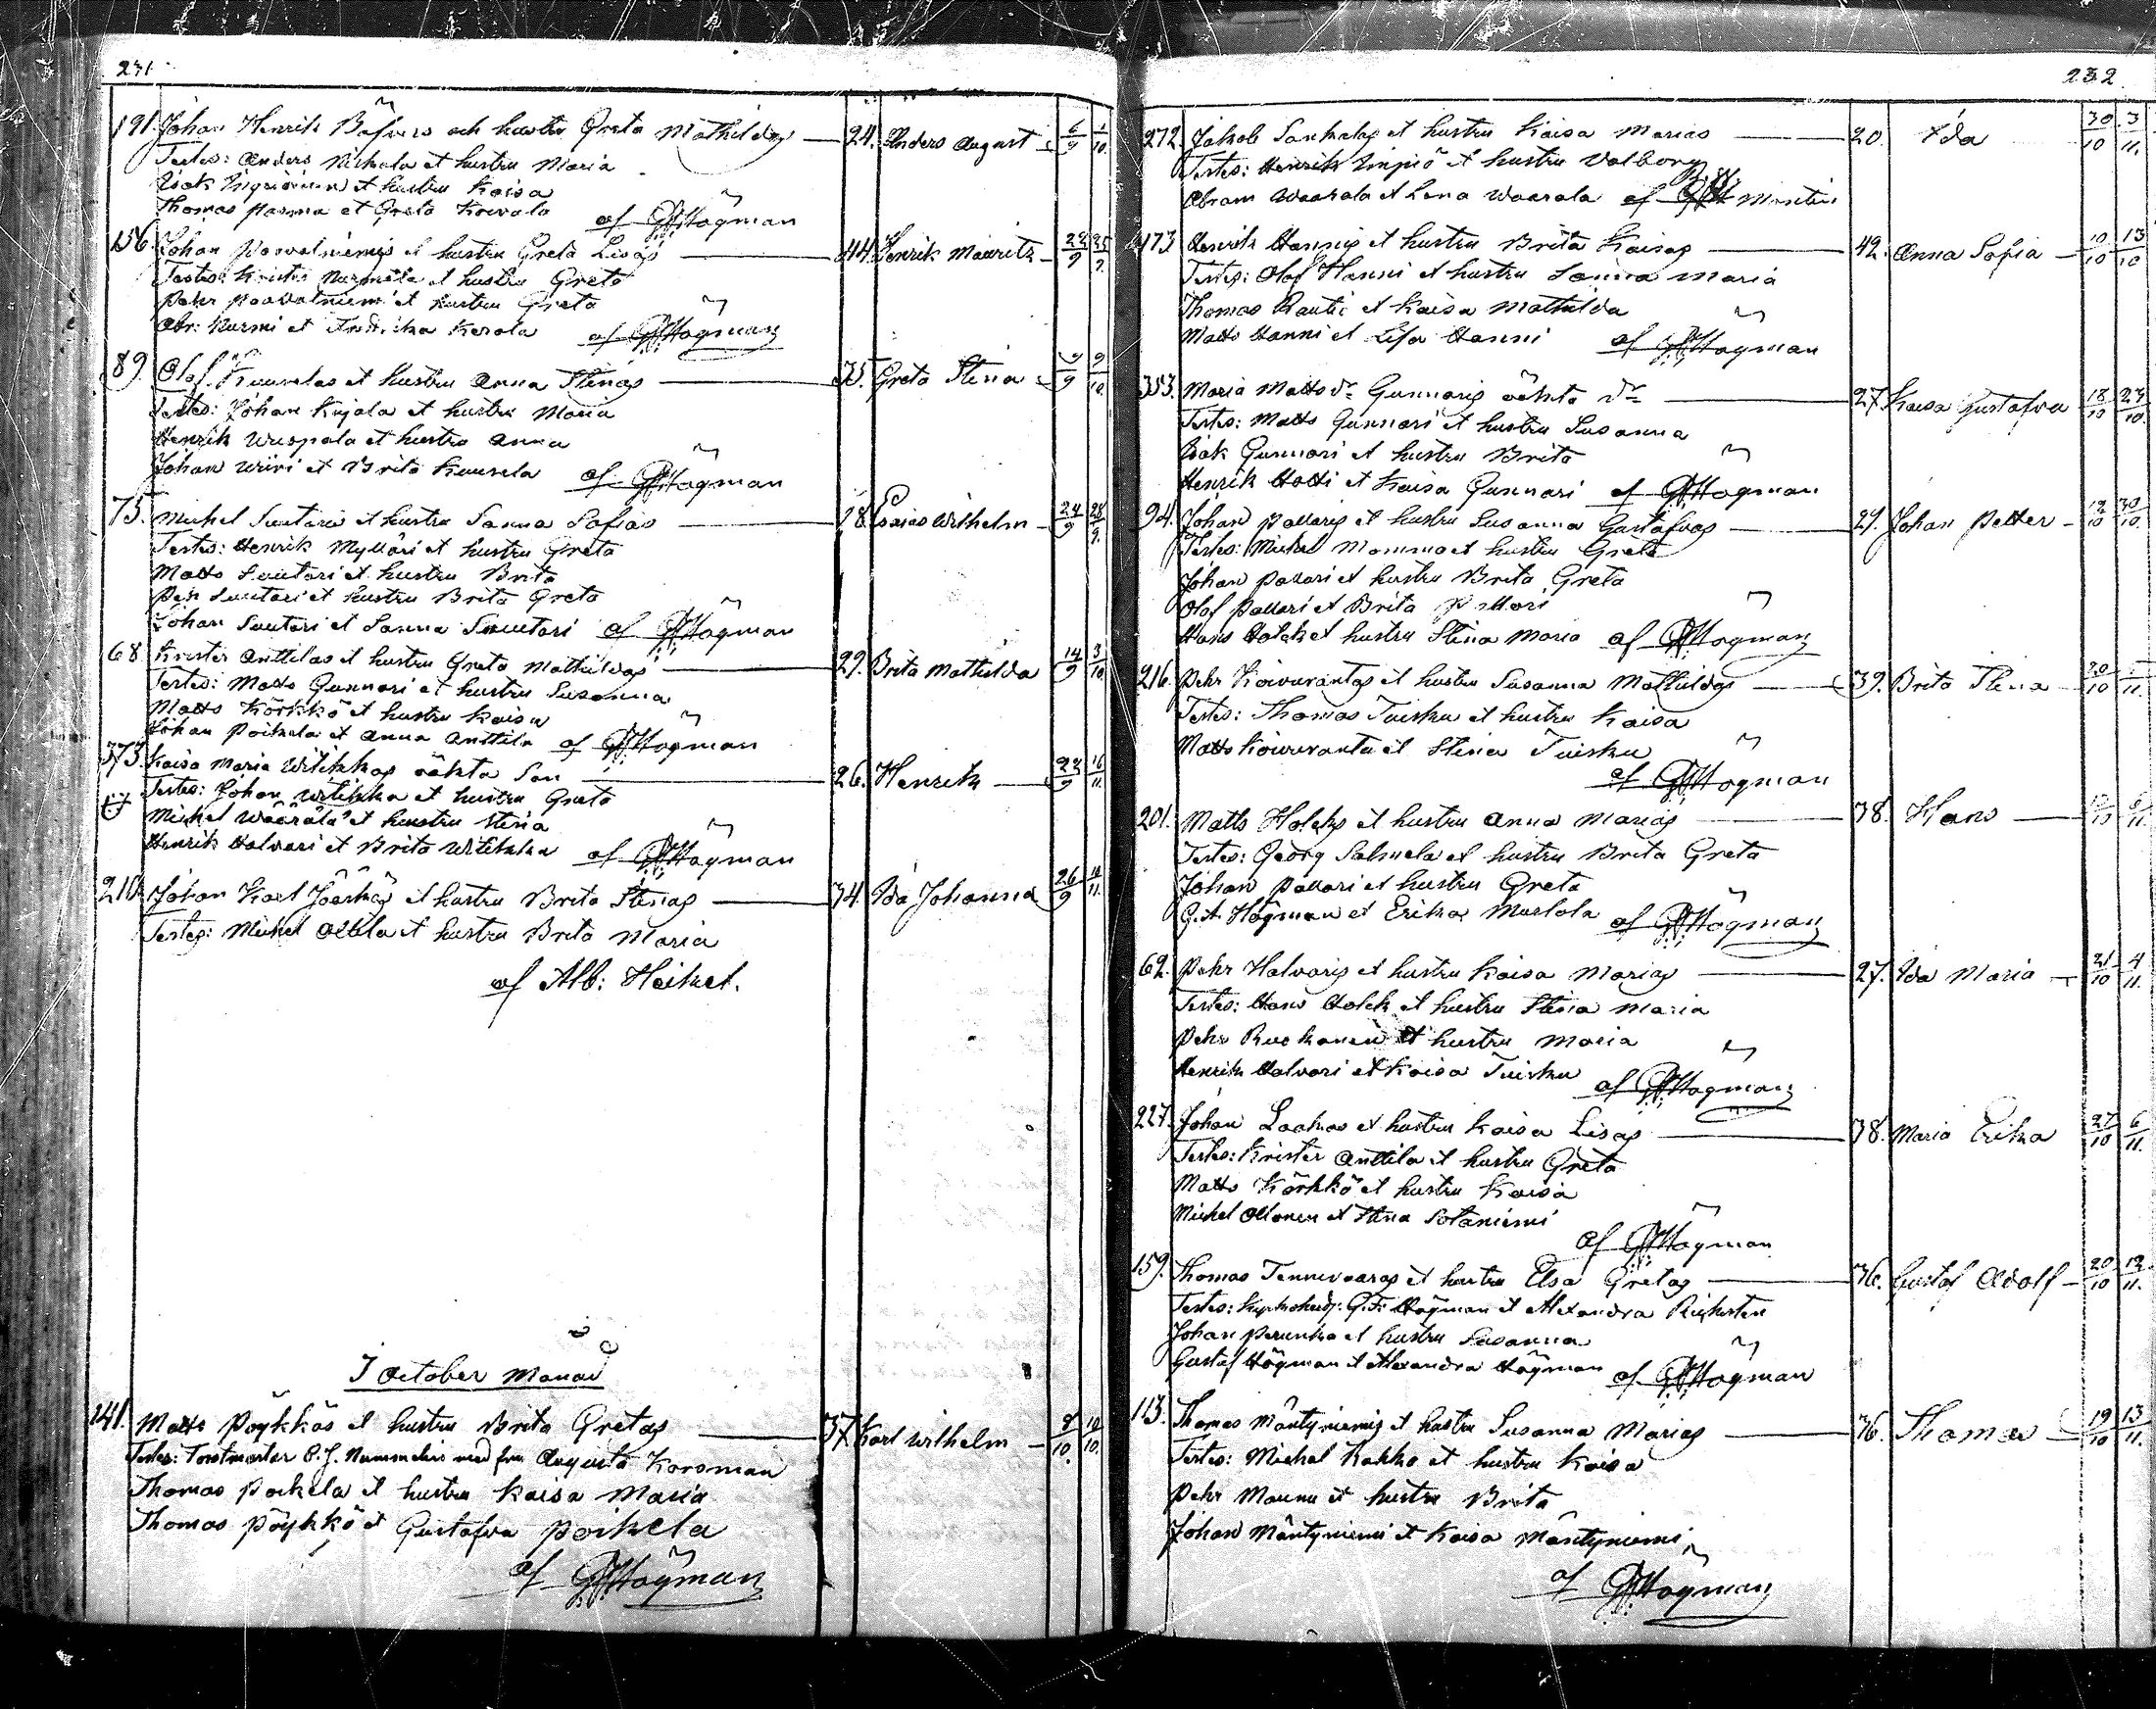 231.
191. Johan Henrik och hustru Greta Mathildas — 24. Anders August 6/9 1/10.
Testes: Anders Niskala et hustru Maria
Isak et hustru Kaisa
Thomas Pasma et Greta Koivala af GFHögman
156. Johan Paavalniemis et hustru Greta Lisas — 44. Henrik Mauritz 22/9 25/9.
Testes: Krister et hustru Greta
Pehr Paavalniemi et hustru Greta
Abr: Nurmi et Fredrika Kerola af GFHögman
89. Olof Kuuselas et hustru Anna Stinas — 35. Greta Stina 9/10.
Testes: Johan Kujala et hustru Maria
Henrik Wuopala et hustru Anna
Johan Wiiri et Brita Kuusela af GFHögman
75. Michel Suutaris et hustru Sanna Sofias — 28. Esaias Wilhelm 24/9 28/9.
Testes: Henrik Mylläri et hustru Greta
Matts Suutari et hustru Brita
Pehr Suutari et hustru Brita Greta
Johan Suutari et Sanna Suutari af GFHögman
68. Krister Anttilas et hustru Greta Mathildas — 29. Brita Mathilda 14/9 3/10
Testes: Matts Gunnari et hustru Susanna
Matts Körkkö et hustru Kaisa
Johan Poikela et Anna Anttila af GFHögman
373. Kaisa Maria Witikkas oäkta Son — 26. Henrik 22/9 16/11.
Testes: Johan Witikka et hustru Greta
Michel Wäärälä et hustru Stina
Henrik Halvari et Brita Witikka af GFHögman
210. Johan Karl Jääskös et hustru Brita Stinas — 34. Ida Johanna 26/9 11/11.
Testes: Michel Ollila et hustru Brita Maria
af Alb: Heikel.
I October Månad
141. Matts Pöykkös et hustru Brita Gretas — 37. Karl Wilhelm 8/10 10/10.
Testes: Forstmestar P. J. Nummelin med fru Augusta Korsman
Thomas Poikela et hustru Kaisa Maria
Thomas Pöykkö et Gustafva Poikela
af GFHögman
232
272. Jakob Sankalas et hustru Kaisa Marias — 20. Ida 30/10 3/11.
Testes: Henrik Impiö et hustru Valborg
Abram Waarala et Lena Waarala af Montin
173. Henrik Hannis et hustru Brita Kaisas — 42. Anna Sofia 10/10 13/10
Testes: Olof Hanni et hustru Sanna Maria
Thomas Rautio et Kaisa Mathilda
Matts Hanni et Lisa Hanni af GFHögman
353. Maria Mattsdr Gunnaris oäkta dr — 27. Kaisa Gustafva 18/10 23/10.
Testes: Matts Gunnari et hustru Susanna
Isak Gunnari et hustru Brita
Henrik Hotti et Kaisa Gunnari af GFHögman
94. Johan Pallaris et hustru Susanna Gustafvas — 29. Johan Petter 12/10 30/10.
Testes: Michel Mommo et hustru Greta
Johan Pallari et hustru Brita Greta
Olof Pallari et Brita Pallari
Hans Holck et hustru Stina Maria af GFHögman
216. Pehr Koivurantas et hustru Susanna Mathildas — 39. Brita Stina 20/10 /11.
Testes: Thomas Tuisku et hustru Kaisa
Matts Koivuranta et Stina Tuisku
af GFHögman
201. Matts Holcks et hustru Anna Marias — 38. Hans — /10 6/11.
Testes: Georg Salmela et hustru Brita Greta
Johan Pallari et hustru Greta
G.A. Högman et Erika Marlola af GFHögman
62. Pehr Halvaris et hustru Kaisa Marias — 27. Ida Maria 21/10 4/11.
Testes: Hans Holck et hustru Stina Maria
Pehr Ruokanen et hustru Maria
Henrik Halvari et Kaisa Tuisku af GFHögman
227. Johan Laakos et hustru Kaisa Lisas — 38. Maria Erika 27/10 6/11.
Testes: Krister Anttila et hustru Greta
Matts Körkkö et hustru Kaisa
Michel Ollonen et Stina Sotaniemi
af GFHögman
159. Thomas Tennivaaras et hustru Elsa Gretas — 36. Gustaf Adolf 20/10 12/11.
Testes: Kyrkoherd: G.F. Högman et Alexandra
Johan Perunka et hustru Susanna
Gustaf Högman et Alexandra Högman af GFHögman
113. Thomas Mäntyniemis et hustru Susanna Marias — 36. Thomas 19/10 13/11.
Testes: Michel Kokko et hustru Kaisa
Pehr Maunu et hustru Brita
Johan Mäntyniemi et Kaisa Mäntyniemi
af GFHögman